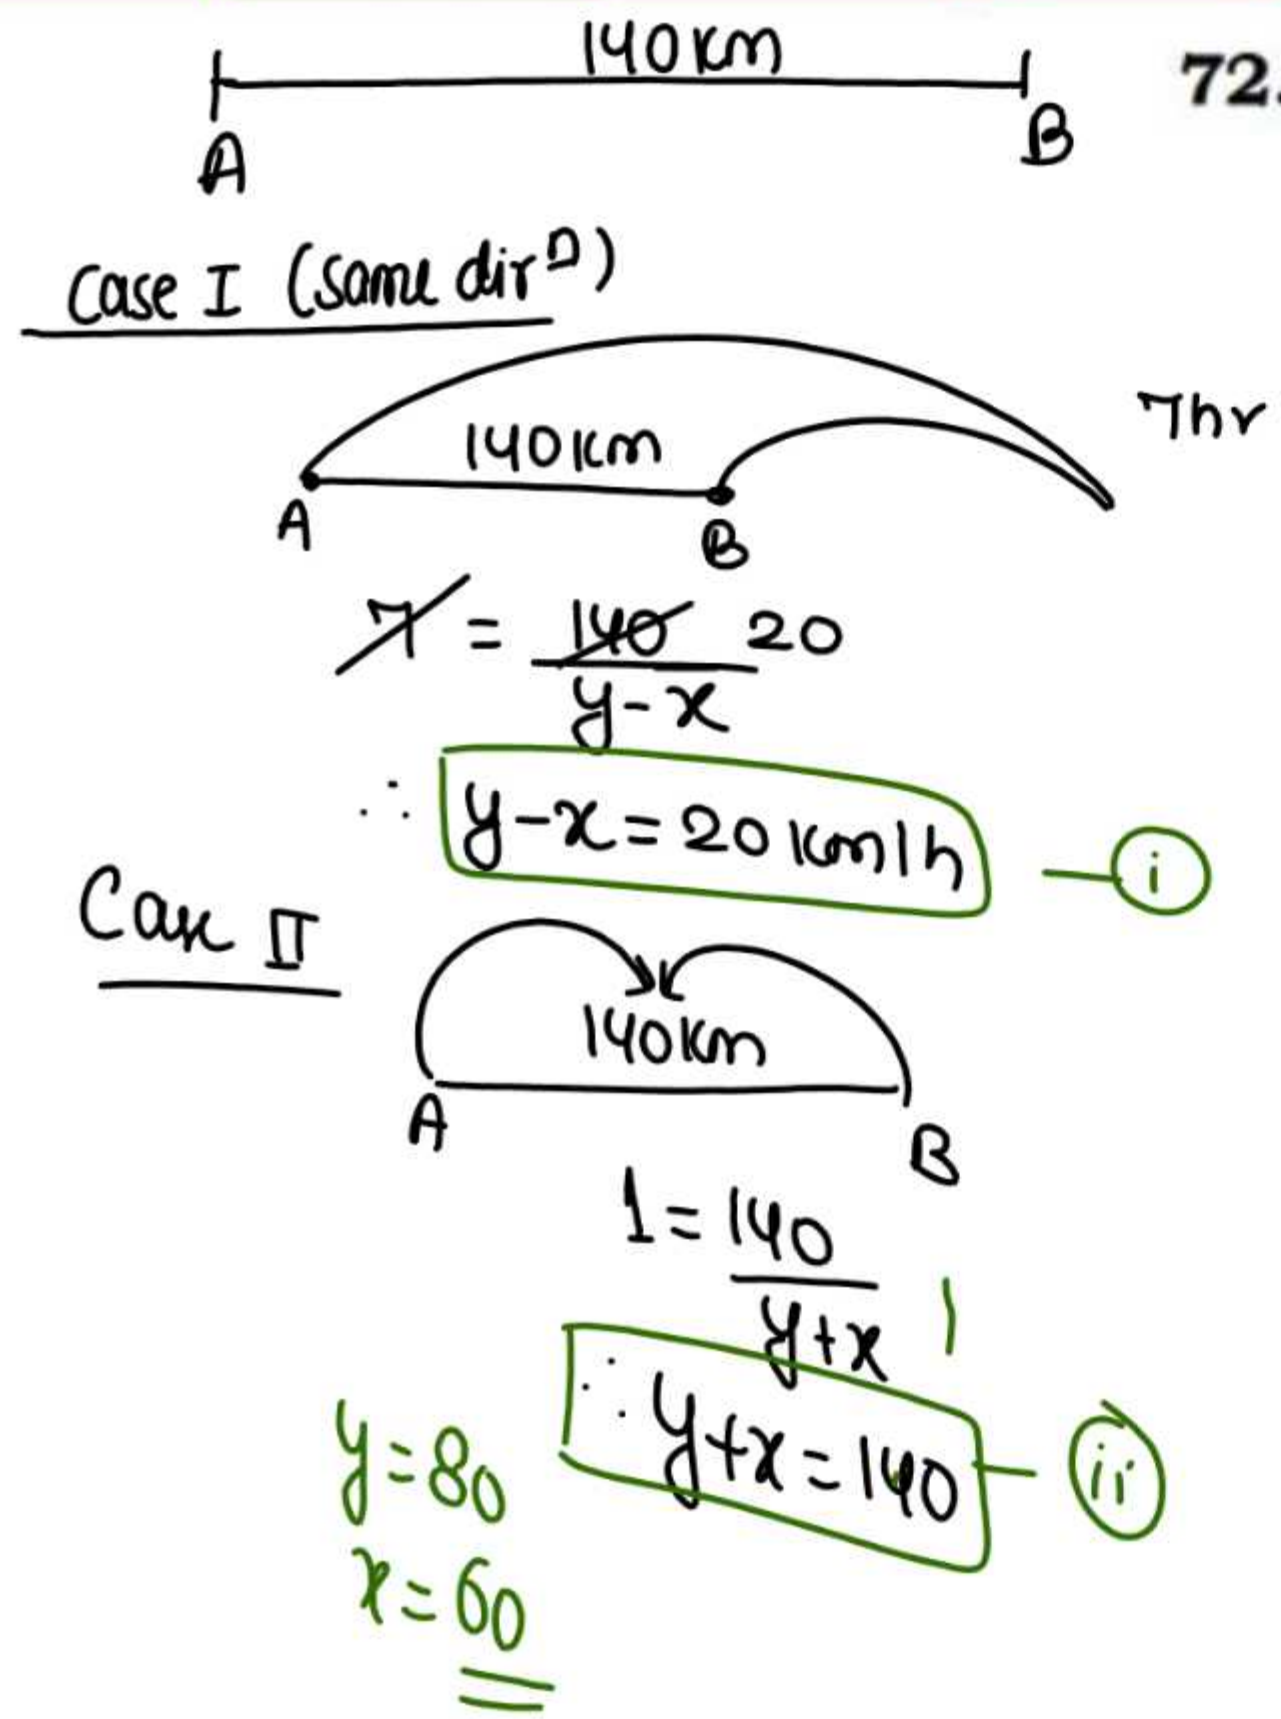 140 km
72.
A B
Case I (same dirⁿ)
7hr
140 km
A B
7 = 140 20
y-x
∴ y-x = 20 km/h — i
Case II
140km
A B
1 = 140
y+x 1
∴ y+x = 140 — ii
y = 80
x = 60